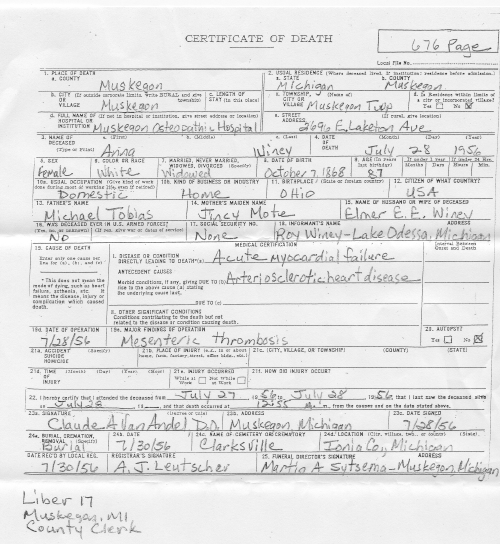 CERTIFICATE OF DEATH
676 Page
Local File No.
1. PLACE OF DEATH
a. COUNTY
Muskegon
2. USUAL RESIDENCE (Where deceased lived. If institution: residence before admission.)
a. STATE Michigan b. COUNTY Muskegon
b. CITY (If outside corporate limits, write RURAL and give township)
OR
VILLAGE Muskegon
c. LENGTH OF STAY (in this place)
c. TOWNSHIP, (Name of)
CITY OR
VILLAGE Muskegon Twp
d. Is Residence within limits of a city or incorporated village?
Yes No X
d. FULL NAME OF (If not in hospital or institution, give street address or location)
HOSPITAL OR
INSTITUTION Muskegon Osteopathic Hospital
e. STREET (If rural, give location)
ADDRESS 2696 E. Laketon Ave
3. NAME OF DECEASED (Type or Print)
a. (First) b. (Middle) c. (Last)
Anna Winey
4. DATE OF DEATH (Month) (Day) (Year)
July 28 1956
5. SEX
Female
6. COLOR OR RACE
White
7. MARRIED, NEVER MARRIED, WIDOWED, DIVORCED (Specify)
Widowed
8. DATE OF BIRTH
October 7, 1868
9. AGE (In years last birthday)
87
If under 1 Year
Months Days
If under 24 Hrs.
Hours Min.
10a. USUAL OCCUPATION (Give kind of work done during most of working life, even if retired)
Domestic
10b. KIND OF BUSINESS OR INDUSTRY
Home
11. BIRTHPLACE (State or foreign country)
Ohio
12. CITIZEN OF WHAT COUNTRY?
USA
13. FATHER'S NAME
Michael Tobias
14. MOTHER'S MAIDEN NAME
Jincy Mote
15. NAME OF HUSBAND OR WIFE OF DECEASED
Elmer E. E. Winey
16. WAS DECEASED EVER IN U.S. ARMED FORCES?
(Yes, no, or unknown) (If yes, give war or dates of service)
No
17. SOCIAL SECURITY NO.
None
18. INFORMANT'S NAME ADDRESS
Roy Winey-Lake Odessa, Michigan
19. CAUSE OF DEATH
Enter only one cause per line for (a), (b), and (c)
* This does not mean the mode of dying, such as heart failure, asthenia, etc. It means the disease, injury or complication which caused death.
MEDICAL CERTIFICATION
I. DISEASE OR CONDITION
DIRECTLY LEADING TO DEATH*(a) Acute myocardial failure
ANTECEDENT CAUSES
Morbid conditions, if any, giving DUE TO (b) Arteriosclerotic heart disease
rise to the above cause (a) stating
the underlying cause last.
DUE TO (c)
II. OTHER SIGNIFICANT CONDITIONS
Conditions contributing to the death but not
related to the disease or condition causing death.
Interval Between Onset and Death
19a. DATE OF OPERATION
7/28/56
19b. MAJOR FINDINGS OF OPERATION
Mesenteric thrombosis
20. AUTOPSY?
Yes No X
21a. ACCIDENT (Specify)
SUICIDE
HOMICIDE
21b. PLACE OF INJURY (e.g., in or about home, farm, factory, street, office bldg., etc.)
21c. (CITY, VILLAGE, OR TOWNSHIP) (COUNTY) (STATE)
21d. TIME (Month) (Day) (Year) (Hour)
OF
INJURY
21e. INJURY OCCURRED
While at Work Not While at Work
21f. HOW DID INJURY OCCUR?
22. I hereby certify that I attended the deceased from July 27 1956 to July 28 1956, that I last saw the deceased alive
on July 28, and that death occurred at 2:55 m., from the causes and on the date stated above.
23a. SIGNATURE (Degree or title)
Claude A Van Andel D.O.
23b. ADDRESS
Muskegon, Michigan
23c. DATE SIGNED
7/28/56
24a. BURIAL, CREMATION, REMOVAL (Specify)
Burial
24b. DATE
7/30/56
24c. NAME OF CEMETERY OR CREMATORY
Clarksville
24d. LOCATION (City, village, twp., or county) (State)
Ionia Co, Michigan
DATE REC'D BY LOCAL REG.
7/30/56
REGISTRAR'S SIGNATURE
A. J. Leutscher
25. FUNERAL DIRECTOR'S SIGNATURE ADDRESS
Martin A Sytsema-Muskegon, Michigan
Liber 17
Muskegon, MI
County Clerk